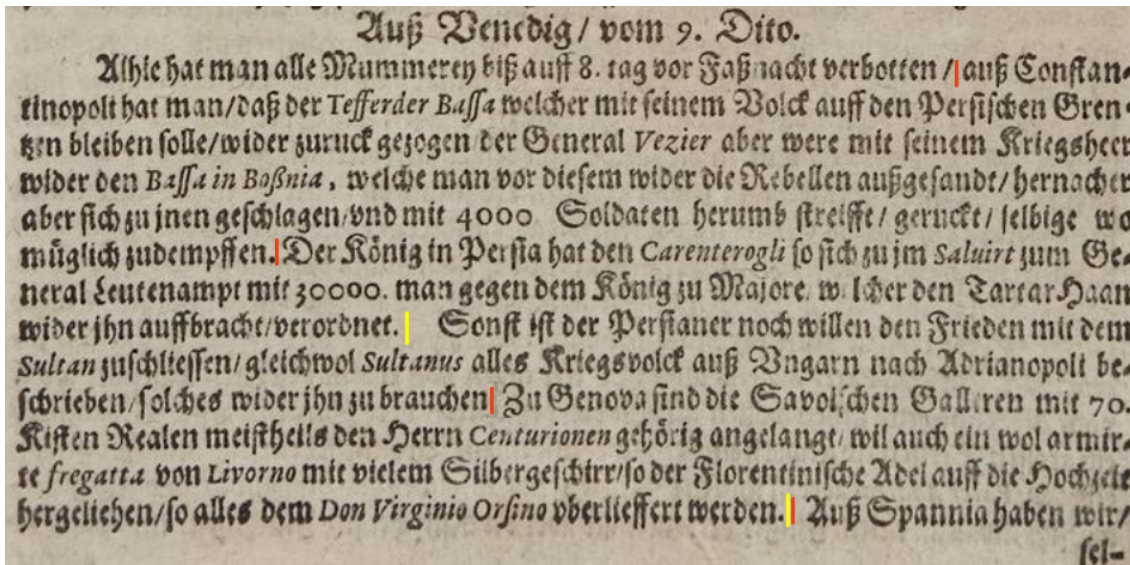 Auß Venedig / vom 9. Dito.
Alhie hat man alle Mummerey biß auff 8. tag vor Faßnacht verbotten / auß Constan-
tinopoli hat man / daß der Tefferder Bassa welcher mit seinem Volck auff den Persischen Gren-
tzen bleiben solle / wider zuruck gezogen der General Vezier aber were mit seinem Kriegsheer
wider den Bassa in Boßnia, welche man vor diesem wider die Rebellen außgesandt / hernacher
aber sich zu jnen geschlagen / vnd mit 4000 Soldaten herumb streiffe / geruckt / selbige wo
müglich zudempffen. Der König in Persia hat den Carenterogli so sich zu jm Saluirt zum Ge-
neral Leutenampt mit 30000. man gegen dem König zu Majore. welcher den Tartar Haan
wider jhn auffbracht / verordnet. Sonst ist der Persianer noch willen den Frieden mit dem
Sultan zuschliessen / gleichwol Sultanus alles Kriegsvolck auß Vngarn nach Adrianopoli be-
schrieben / solches wider jhn zu brauchen Zu Genova sind die Savoischen Galleren mit 70.
Kisten Realen meistheils den Herrn Centurionen gehörig angelangt / wil auch ein wol armir-
te fregatta von Livorno mit vielem Silbergeschirr / so der Florentinische Adel auff die Hochzeit
hergeliehen / so alles dem Don Virginio Orsino vberlieffert werden. Auß Spannia haben wir /
sel-